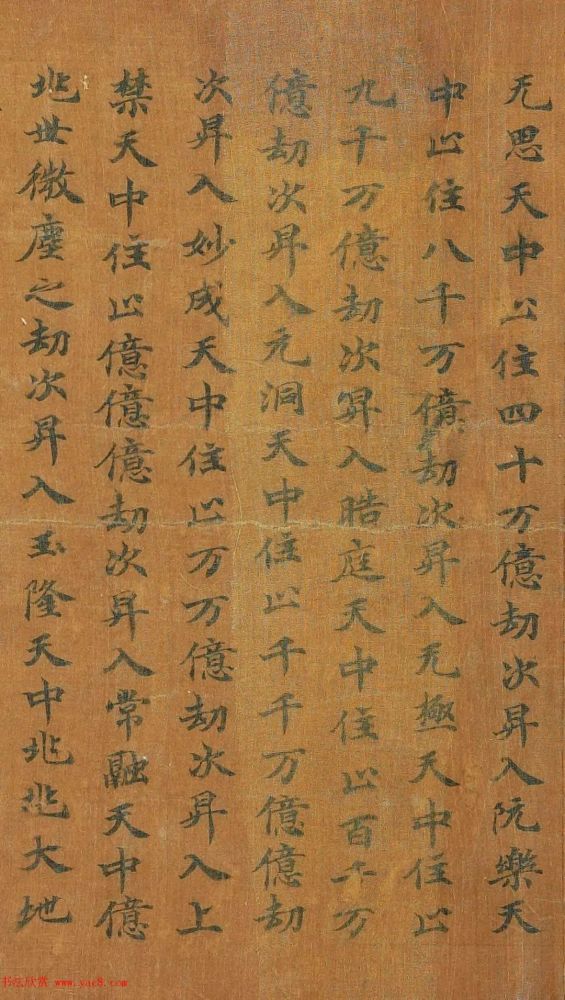 无思天中止住四十万億劫次昇入阮樂天
中止住八千万億劫次昇入无極天中住止
九千万億劫次昇入晧庭天中住止百千万
億劫次昇入元洞天中住止千千万億億劫
次昇入妙成天中住止万万億劫次昇入上
禁天中住止億億億劫次昇入常融天中億
兆世微塵之劫次昇入玉隆天中兆兆大地
书法欣赏 www.yac8.com